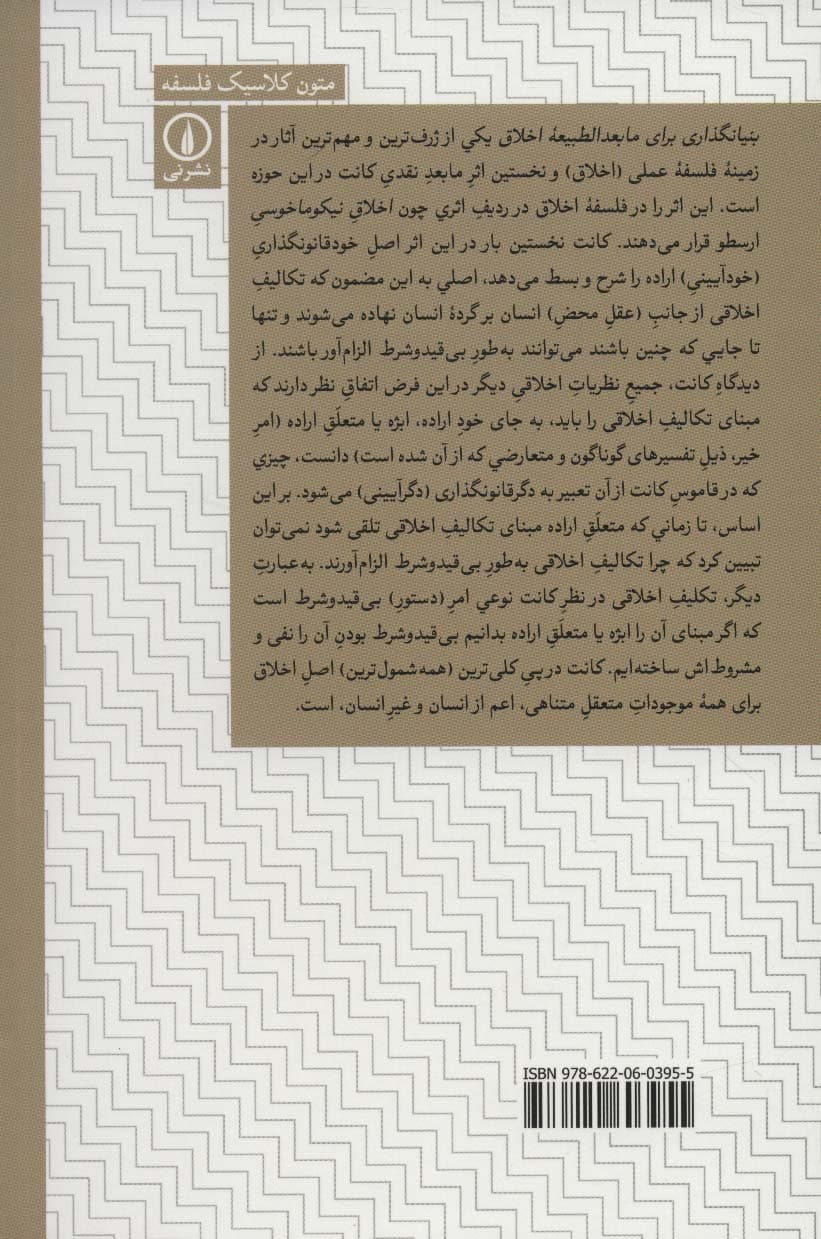 متون کلاسیک فلسفه
نشرنی
بنیانگذاری برای مابعدالطبیعهٔ اخلاق یکي از ژرف‌ترین و مهم‌ترین آثار در
زمینهٔ فلسفهٔ عملی (اخلاق) و نخستین اثرِ مابعدِ نقدیِ کانت در این حوزه
است. این اثر را در فلسفهٔ اخلاق در ردیفِ اثري چون اخلاقِ نیکوماخوسیِ
ارسطو قرار می‌دهند. کانت نخستین بار در این اثر اصلِ خودقانونگذاریِ
(خودآیینیِ) اراده را شرح و بسط می‌دهد، اصلي به این مضمون که تکالیفِ
اخلاقی از جانبِ (عقلِ محضِ) انسان بر گردهٔ انسان نهاده می‌شوند و تنها
تا جایي که چنین باشند می‌توانند به‌طورِ بی‌قیدوشرط الزام‌آور باشند. از
دیدگاهِ کانت، جمیعِ نظریاتِ اخلاقیِ دیگر در این فرض اتفاقِ نظر دارند که
مبنای تکالیفِ اخلاقی را باید، به جای خودِ اراده، ابژه یا متعلّقِ اراده (امرِ
خیر، ذیلِ تفسیرهای گوناگون و متعارضي که از آن شده است) دانست، چیزي
که در قاموسِ کانت از آن تعبیر به دگرقانونگذاری (دگرآیینی) می‌شود. بر این
اساس، تا زماني که متعلّقِ اراده مبنای تکالیفِ اخلاقی تلقی شود نمی‌توان
تبیین کرد که چرا تکالیفِ اخلاقی به‌طورِ بی‌قیدوشرط الزام‌آورند. به‌عبارتِ
دیگر، تکلیفِ اخلاقی در نظرِ کانت نوعي امرِ (دستورِ) بی‌قیدوشرط است
که اگر مبنای آن را ابژه یا متعلّقِ اراده بدانیم بی‌قیدوشرط بودنِ آن را نفی و
مشروط‌اش ساخته‌ایم. کانت در پیِ کلی‌ترین (همه‌شمول‌ترین) اصلِ اخلاق
برای همهٔ موجوداتِ متعقلِ متناهی، اعم از انسان و غیرِ انسان، است.
ISBN 978-622-06-0395-5